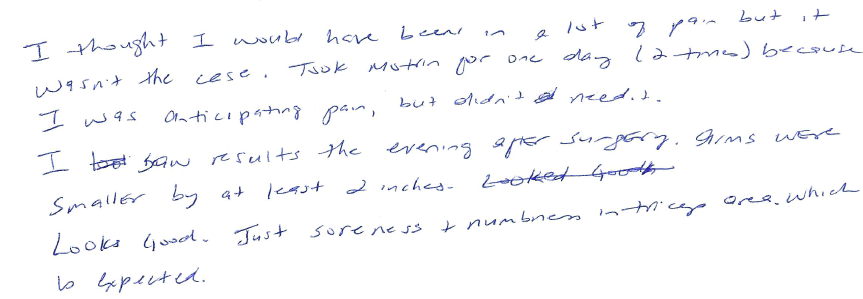 I thought I would have been in a lot of pain but it
wasn't the case. Took Motrin for one day (2 times) because
I was anticipating pain, but didn't need it.
I saw results the evening after surgery. Arms were
smaller by at least 2 inches. Looked Good
Looks Good. Just soreness + numbness in tricep area. Which
is expected.